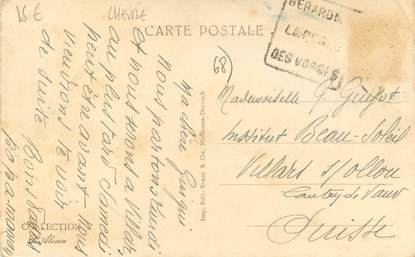 15 €
CHEVRE
CARTE POSTALE
GÉRARDM
LA PERLE
DES VOSGES
68
Ma chère Guigui
Nous partons Lundi
et nous serons à Villars
au plus tard Samedi
peut être avant. Nous
viendrons te voir
de suite Bons baisers
papa maman
Mademoiselle G. Guyot
Institut Beau-Soleil
Villars s/ Ollon
Canton de Vaud
Suisse
Imp. Edit. Braun & Cie, Mulhouse-Dornach
COLLECTION
Alsace